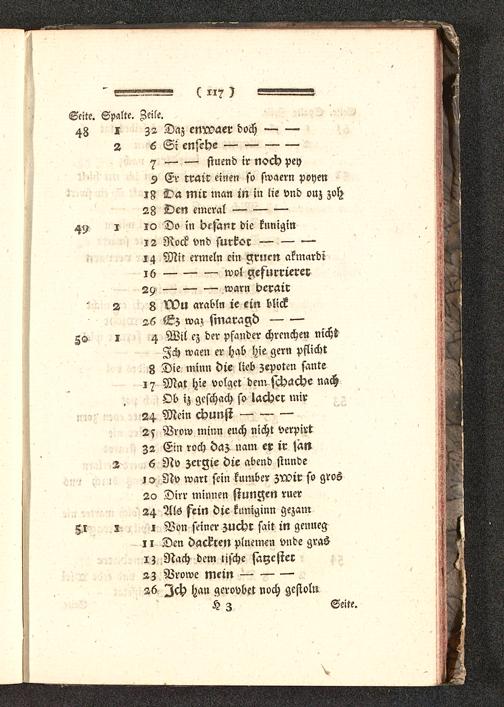 ( 117 )
Seite. Spalte. Zeile.
48 1 32 Daz enwaer doch — —
2 6 Si ensehe — — — —
7 — — stuend ir noch pey
9 Er trait einen so swaern poyen
18 Da mit man in in lie vnd ouz zoh
28 Den emeral — — —
49 1 10 Do in besant die kunigin
12 Rock vnd surkot — — —
14 Mit ermeln ein gruen akmardi
16 — — — wol gefurrieret
29 — — — warn berait
2 8 Wu arabln ie ein blick
26 Ez waz smaragd — —
50 1 4 Wil ez der pfander chrenchen nicht
Ich waen er hab hie gern pflicht
8 Die minn die lieb zepoten sante
17 Mat hie volget dem schache nach
Ob iz geschach so lachet mir
24 Mein chunst — — —
25 Vrow minn euch nicht verpirt
32 Ein roch daz nam er ir san
2 6 Nv zergie die abend stunde
10 Nv wart sein kumber zwir so gros
20 Dirr minnen stungen ruer
24 Als sein die kuniginn gezam
51 1 1 Von seiner zucht sait in genueg
11 Den dackten pluemen vnde gras
13 Nach dem tische satzestet
23 Vrowe mein — — —
26 Ich han gerovbet noch gestoln
H 3 Seite.